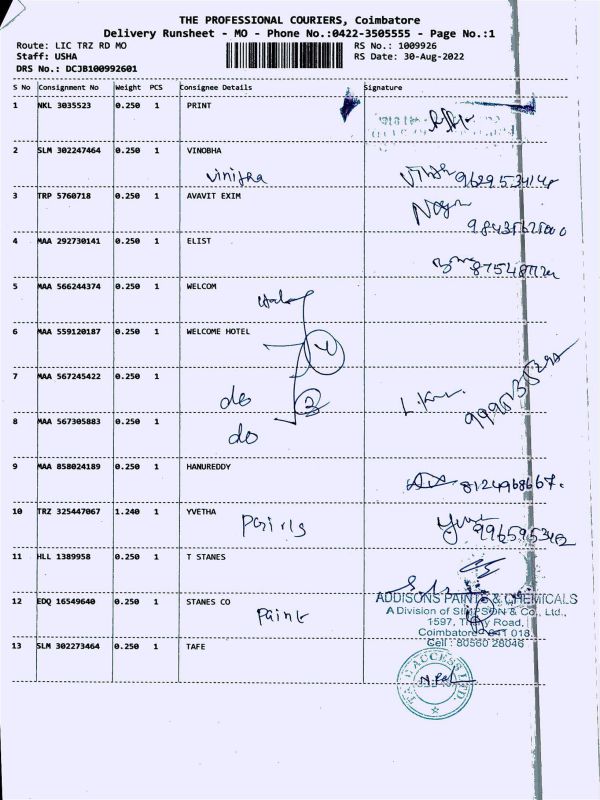 THE PROFESSIONAL COURIERS, Coimbatore
Delivery Runsheet - MO - Phone No.:0422-3505555 - Page No.:1
Route: LIC TRZ RD MO RS No.: 1009926
Staff: USHA RS Date: 30-Aug-2022
DRS No.: DCJB100992601
S No Consignment No Weight PCS Consignee Details Signature
1 NKL 3035523 0.250 1 PRINT
2 SLM 302247464 0.250 1 VINOBHA
3 TRP 5760718 0.250 1 AVAVIT EXIM
4 MAA 292730141 0.250 1 ELIST
5 MAA 566244374 0.250 1 WELCOM
6 MAA 559120187 0.250 1 WELCOME HOTEL
7 MAA 567245422 0.250 1
do
8 MAA 567305883 0.250 1
do
9 MAA 858024189 0.250 1 HANUREDDY
8124968667.
10 TRZ 325447067 1.240 1 YVETHA
11 HLL 1389958 0.250 1 T STANES
12 EDQ 16549640 0.250 1 STANES CO
Paint
ADDISONS PAINTS & CHEMICALS
A Division of SIMPSON & Co., Ltd.,
1597, Trichy Road,
Coimbatore - 641 018.
Cell : 80560 28046
13 SLM 302273464 0.250 1 TAFE